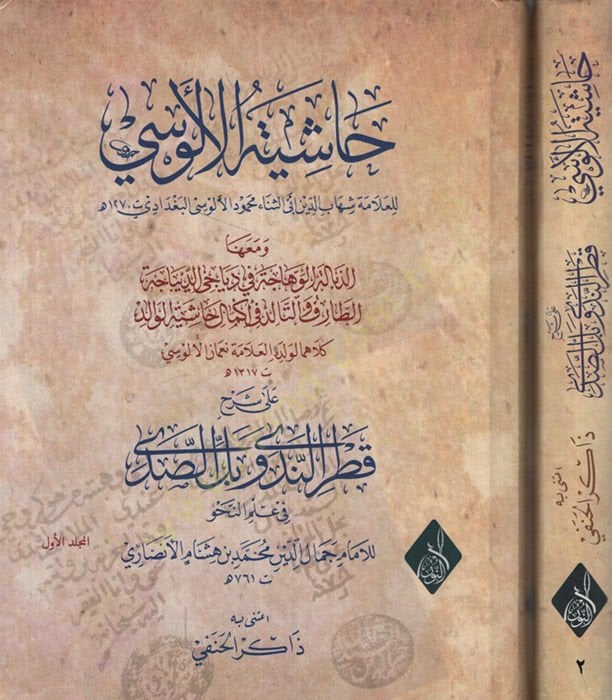 حاشية الألوسي
للعلامة شهاب الدين أبي الثناء محمود الألوسي البغدادي ت ١٢٧٠هـ
ومعها
الذبالة الوهاجة في دياجي الديباجة
الطارف والتالد في إكمال حاشية الوالد
كلاهما لولده العلامة نعمان الألوسي
ت ١٣١٧هـ
على شرح
قطر الندى وبل الصدى
في علم النحو
المجلد الأول
للإمام جمال الدين محمد بن هشام الأنصاري
ت ٧٦١هـ
اعتنى به
ذاكر الحنفي
النور
حاشية الألوسي
على شرح
قطر الندى وبل الصدى
اعتنى به
ذاكر الحنفي
النور
٢